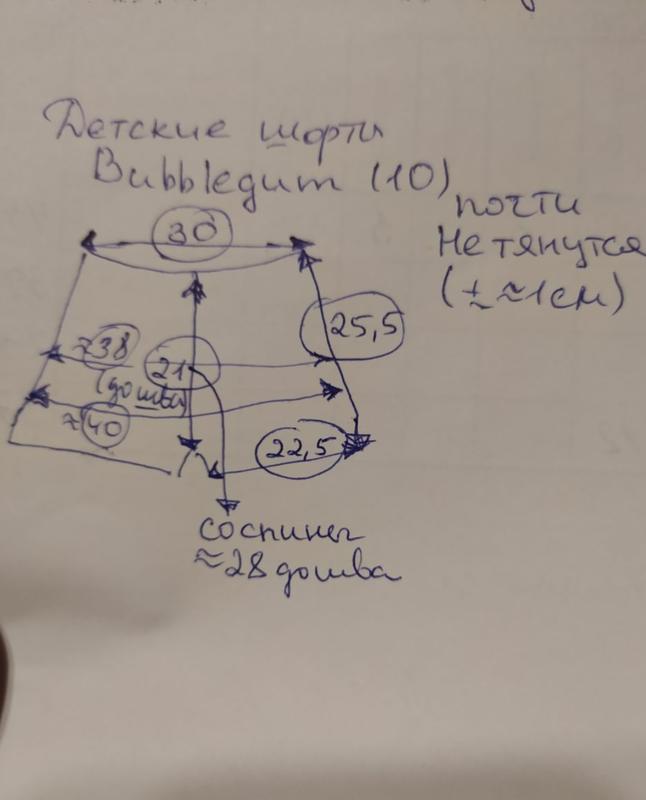 Детские шорты
Bubblegum (10)
почти
Не тянутся
(± ≈1см)
30
25,5
≈38
21
(до шва)
≈40
22,5
со спины
≈28 до шва